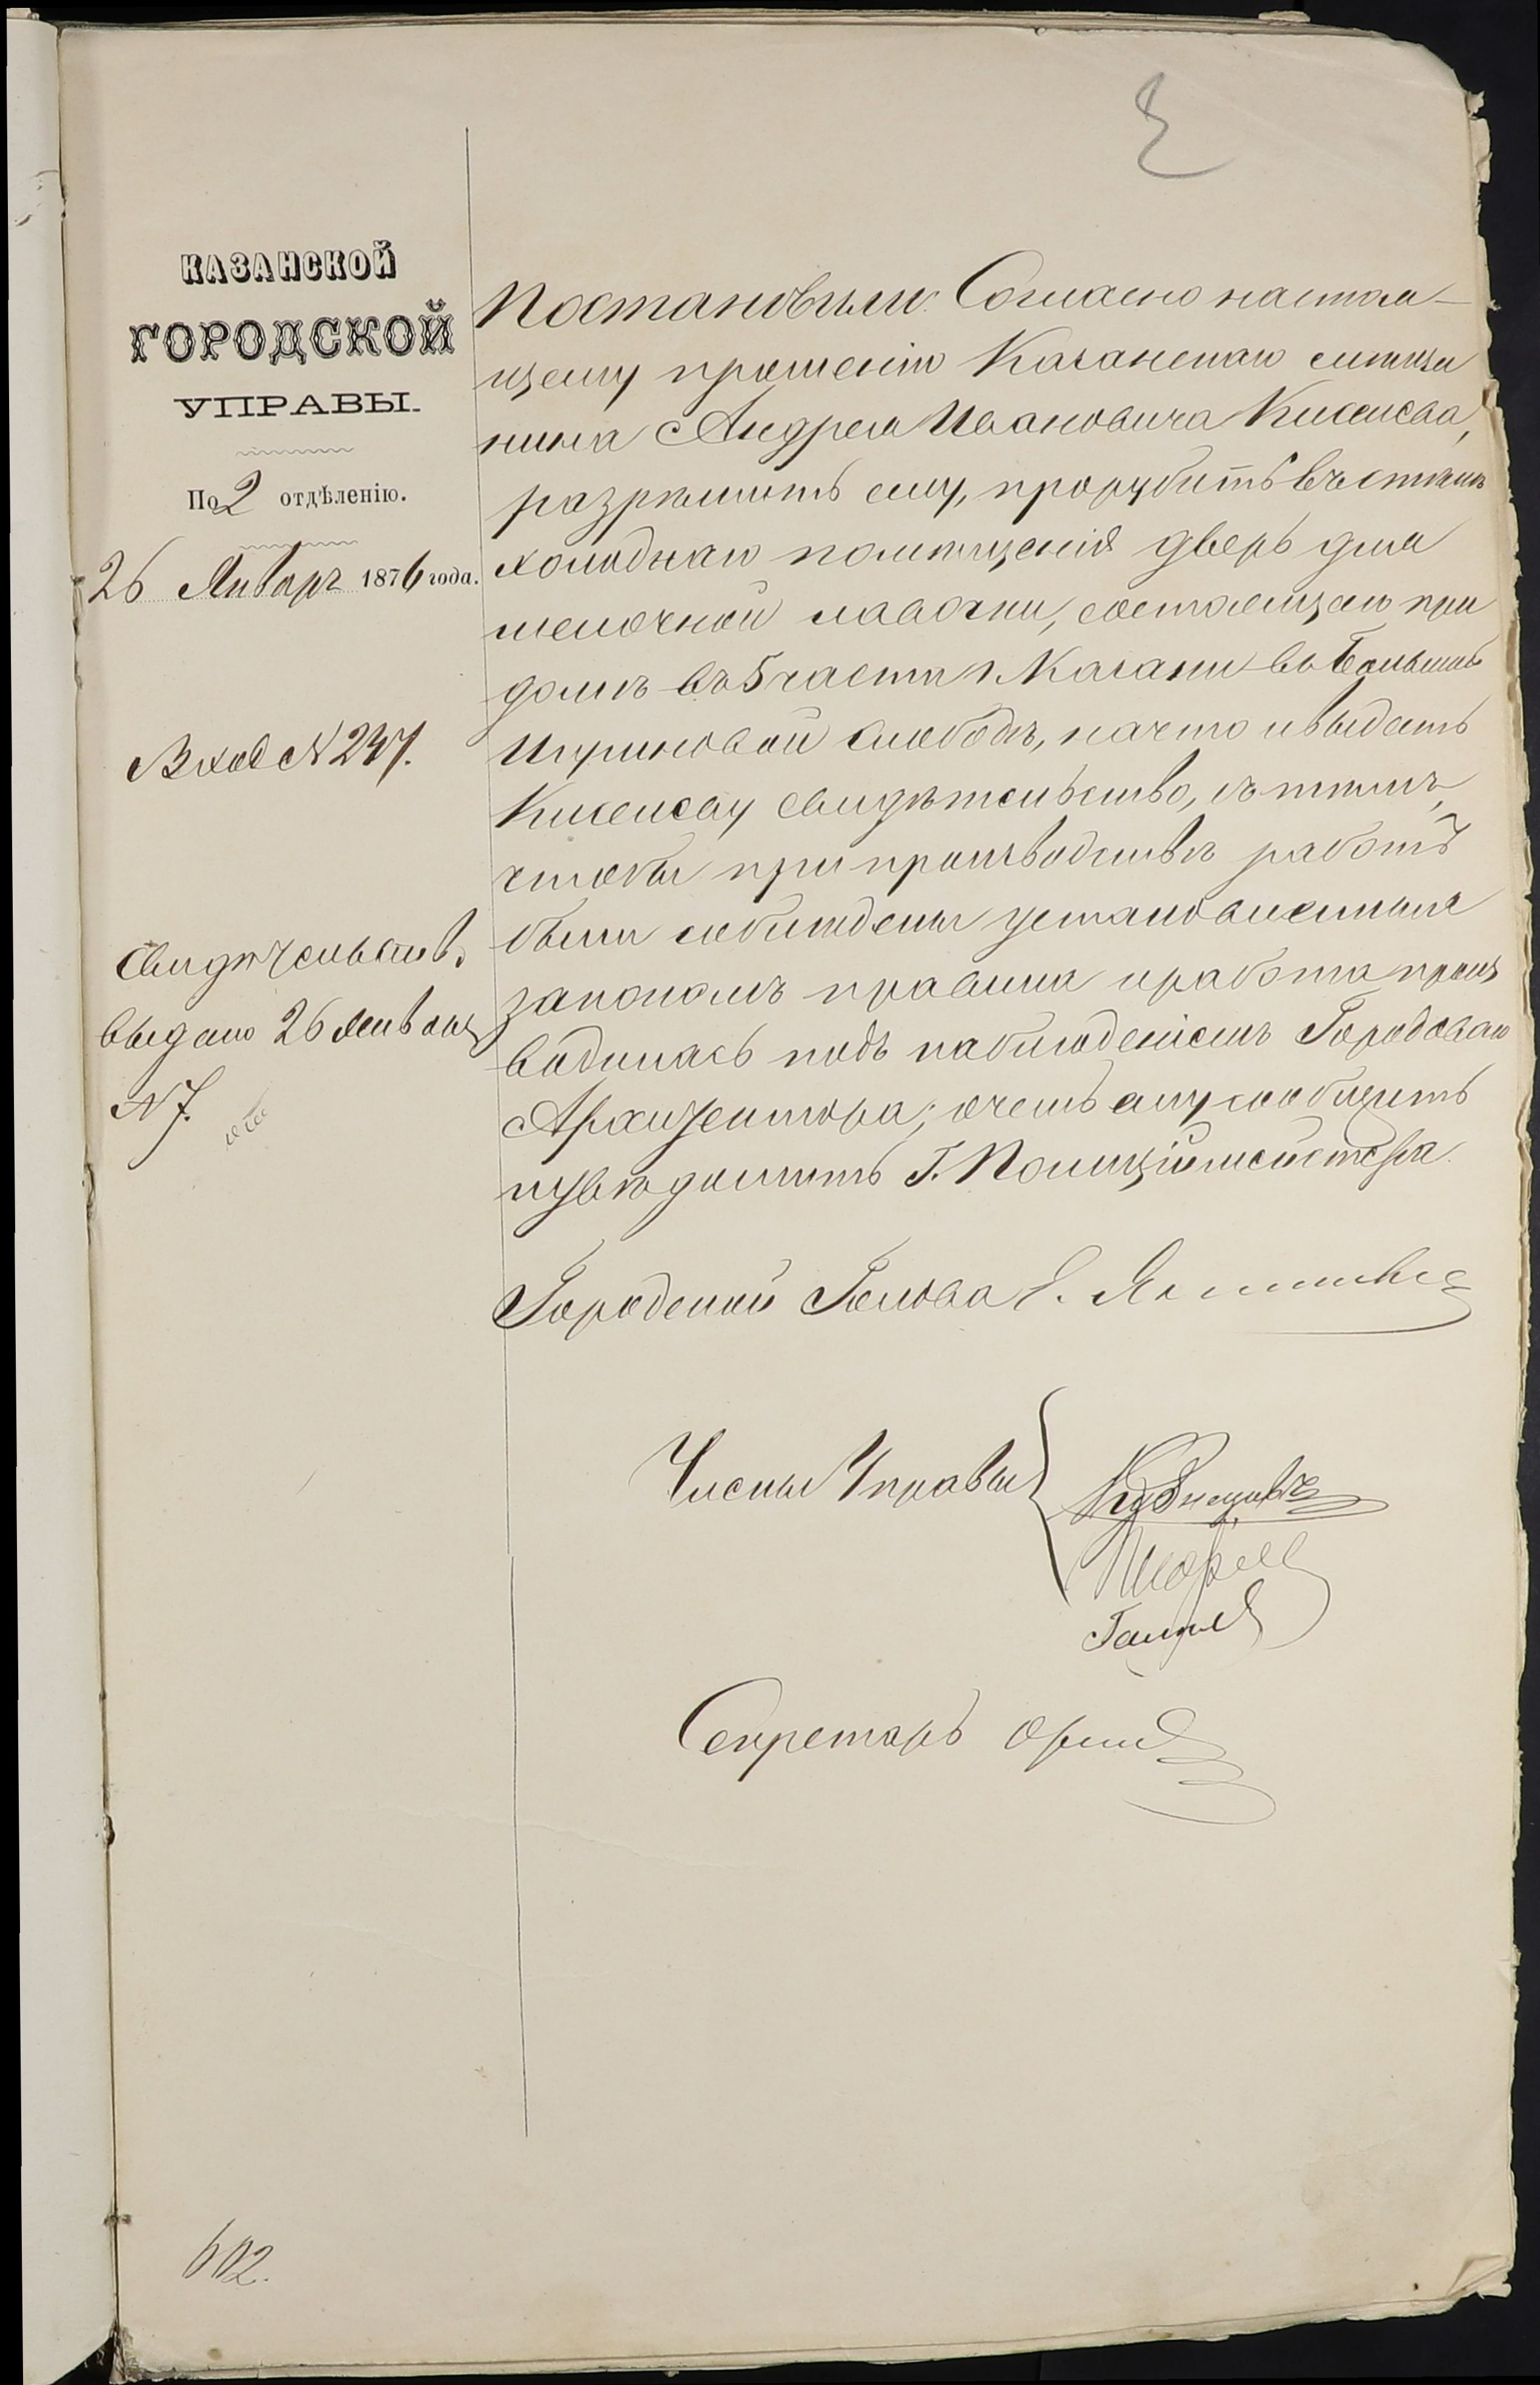 КАЗАНСКОЙ
ГОРОДСКОЙ
УПРАВЫ.
По 2 отдѣленію.
26 Января 1876 года.
Вход № 247.
Свидѣтельств.
выдано 26 января
№ 7.
Постановили: Согласно настоя-
щему прошенію Казанскаго мѣща
нина Андрея Ивановича Киселева,
разрѣшить ему, прорубить въ стѣнѣ
холоднаго помѣщенія дверь для
мелочной лавочки, состоящей при
домѣ въ 5 части г. Казани въ Большой
Игумновой слободѣ, на что и выдать
Киселеву свидѣтельство, съ тѣмъ,
чтобы при производствѣ работъ
были соблюдены установленныя
закономъ правила и работа произ
водилась подъ наблюденіемъ Городоваго
Архитектора; о чемъ ему сообщить
и увѣдомить Г. Полиціймейстера.
Городской Голова
Члены Управы
Кузнецовъ
Секретарь
602.